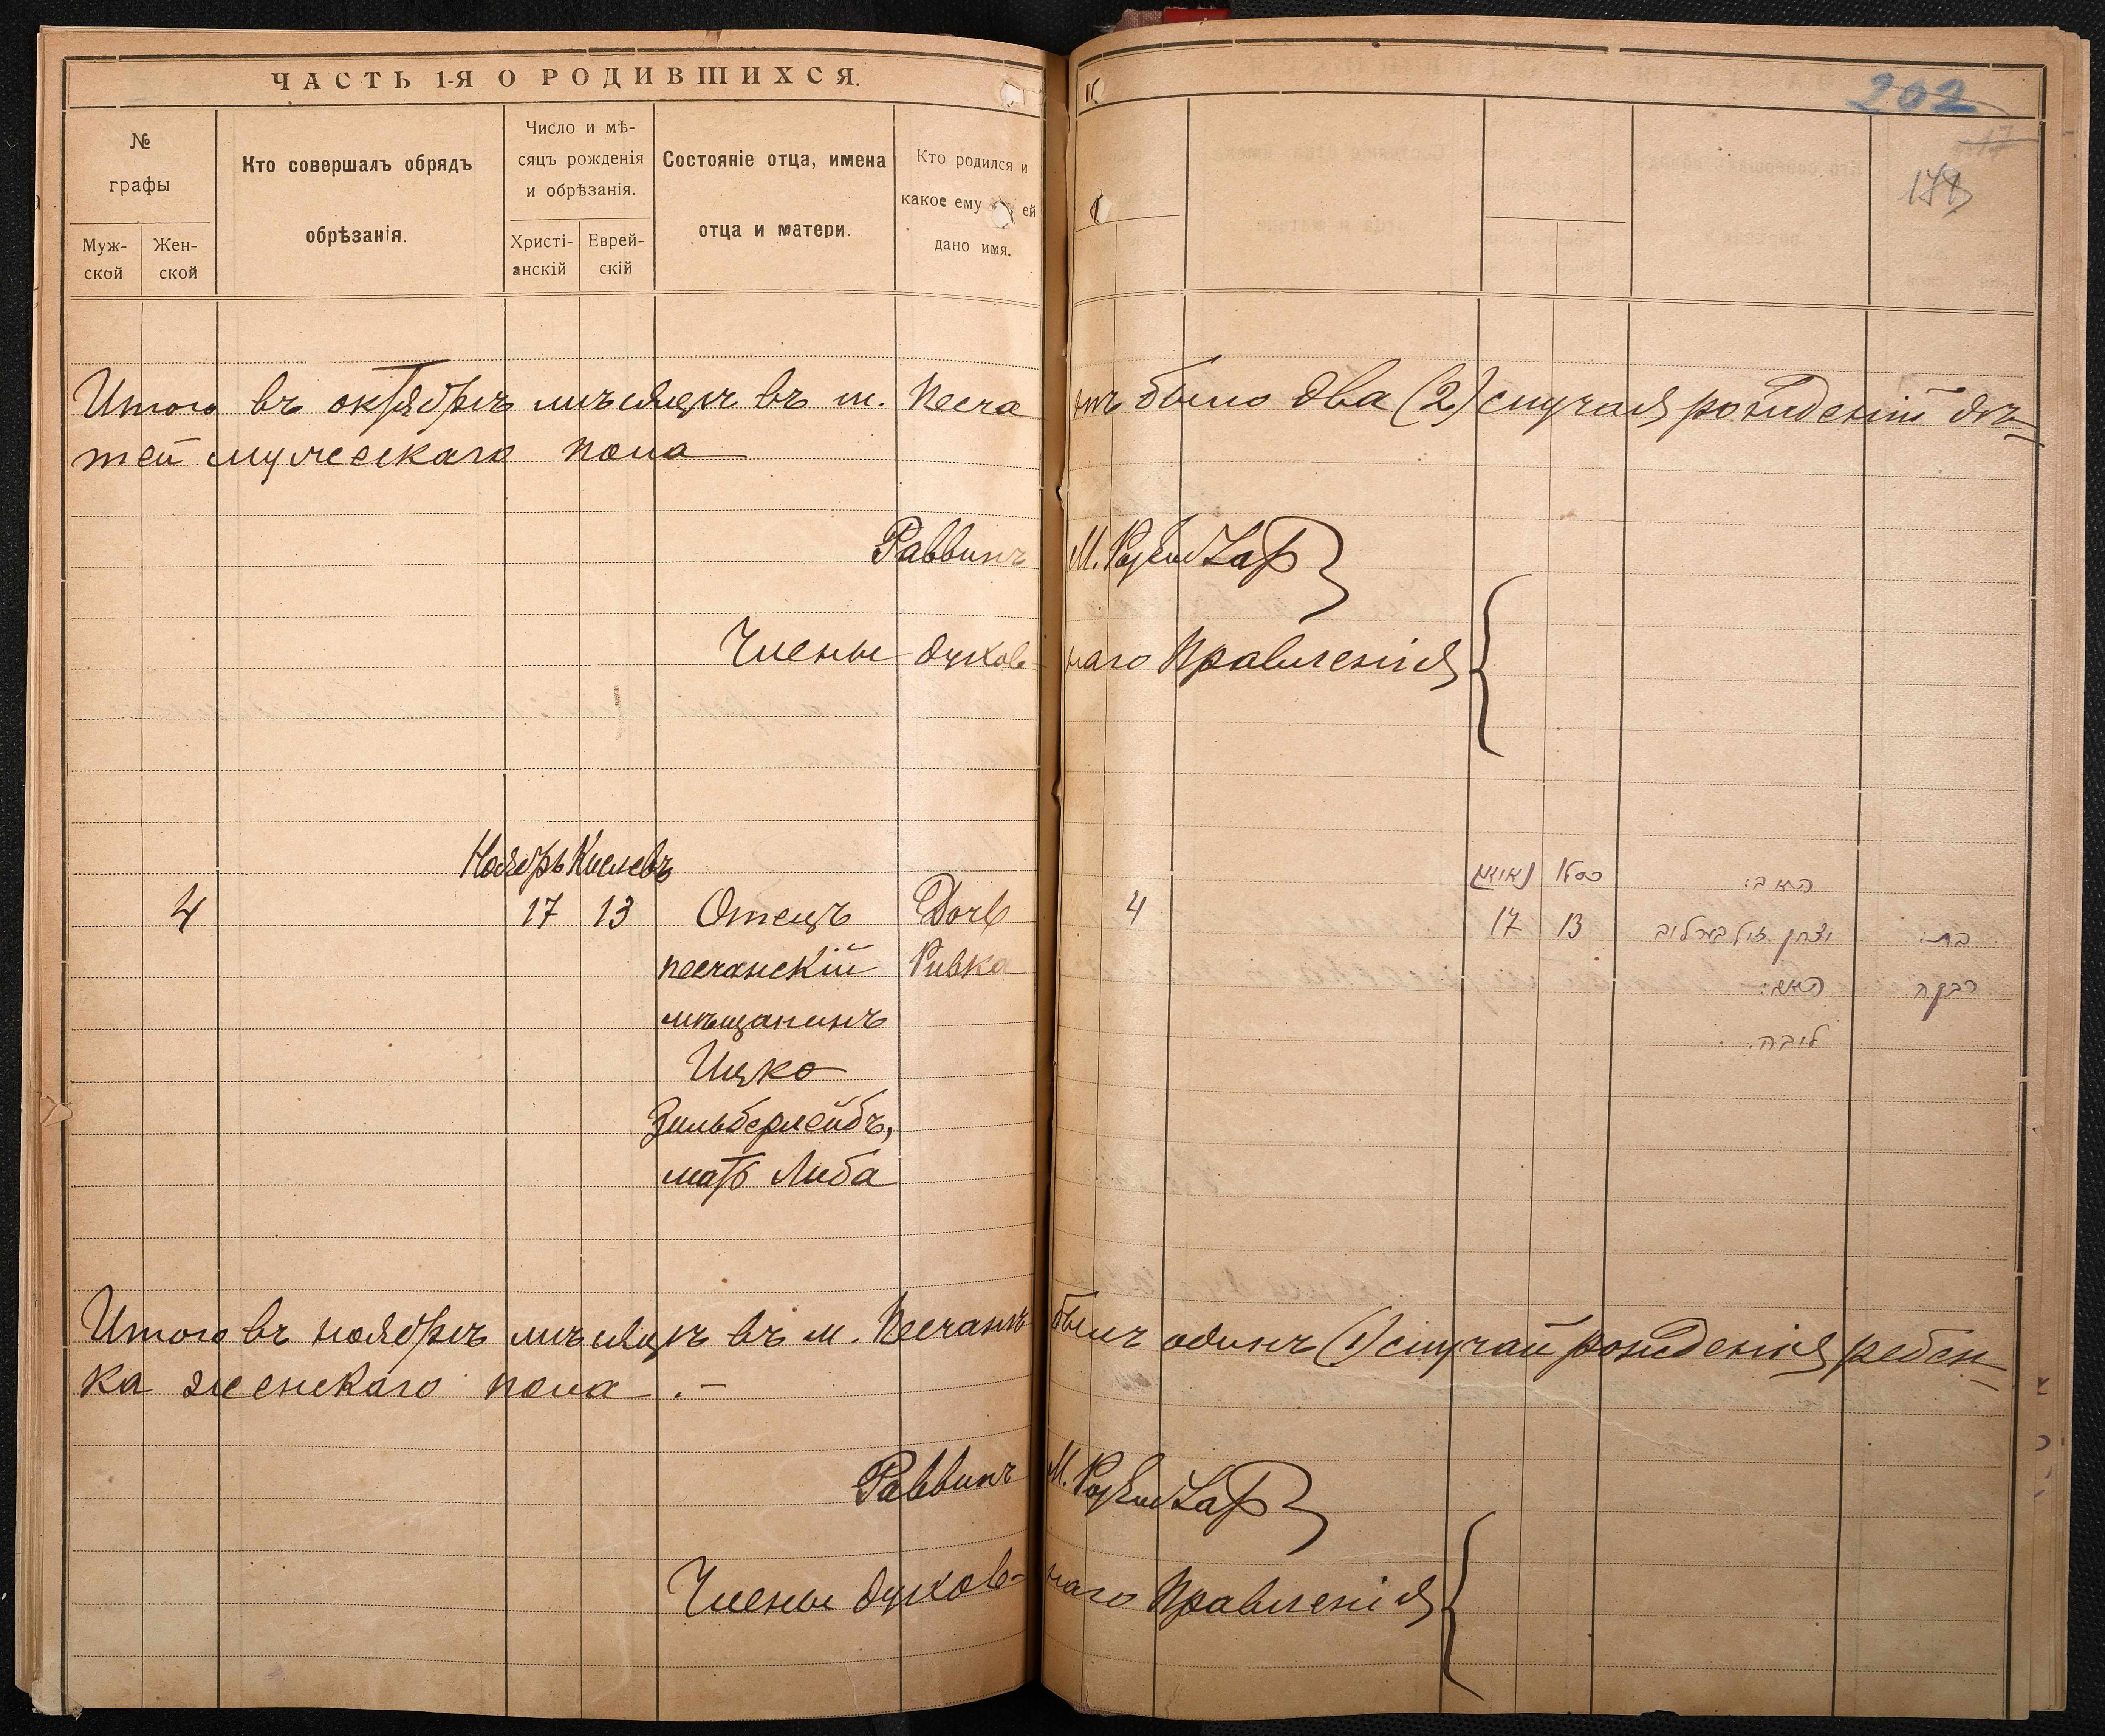 ЧАСТЬ 1-Я О РОДИВШИХСЯ.
202
№
графы
Муж-
ской
Жен-
ской
Кто совершалъ обрядъ
обрѣзанія.
Число и мѣ-
сяцъ рожденія
и обрѣзанія.
Христі-
анскій
Еврей-
скій
Состояніе отца, имена
отца и матери.
Кто родился и
какое ему ей
дано имя.
Итого въ октябрѣ мѣсяцѣ въ м. Песчанѣ было два (2) случая рожденій дѣ-
тей мужескаго пола
Раввинъ М.
Члены духов-наго Правленія
Ноябрь Кислевъ
4 17 13 Отецъ Дочь
песчанскій Ривка
мѣщанинъ
Ицко
Зильберлейбъ,
мать Либа
4 17 13
האב:
יצחק זילבערלייב בת:
האם: רבקה
ליבה.
Итого въ ноябрѣ мѣсяцѣ въ м. Песчанѣ былъ одинъ (1) случай рожденія ребен-
ка женскаго пола.-
Раввинъ М.
Члены духов-наго Правленія